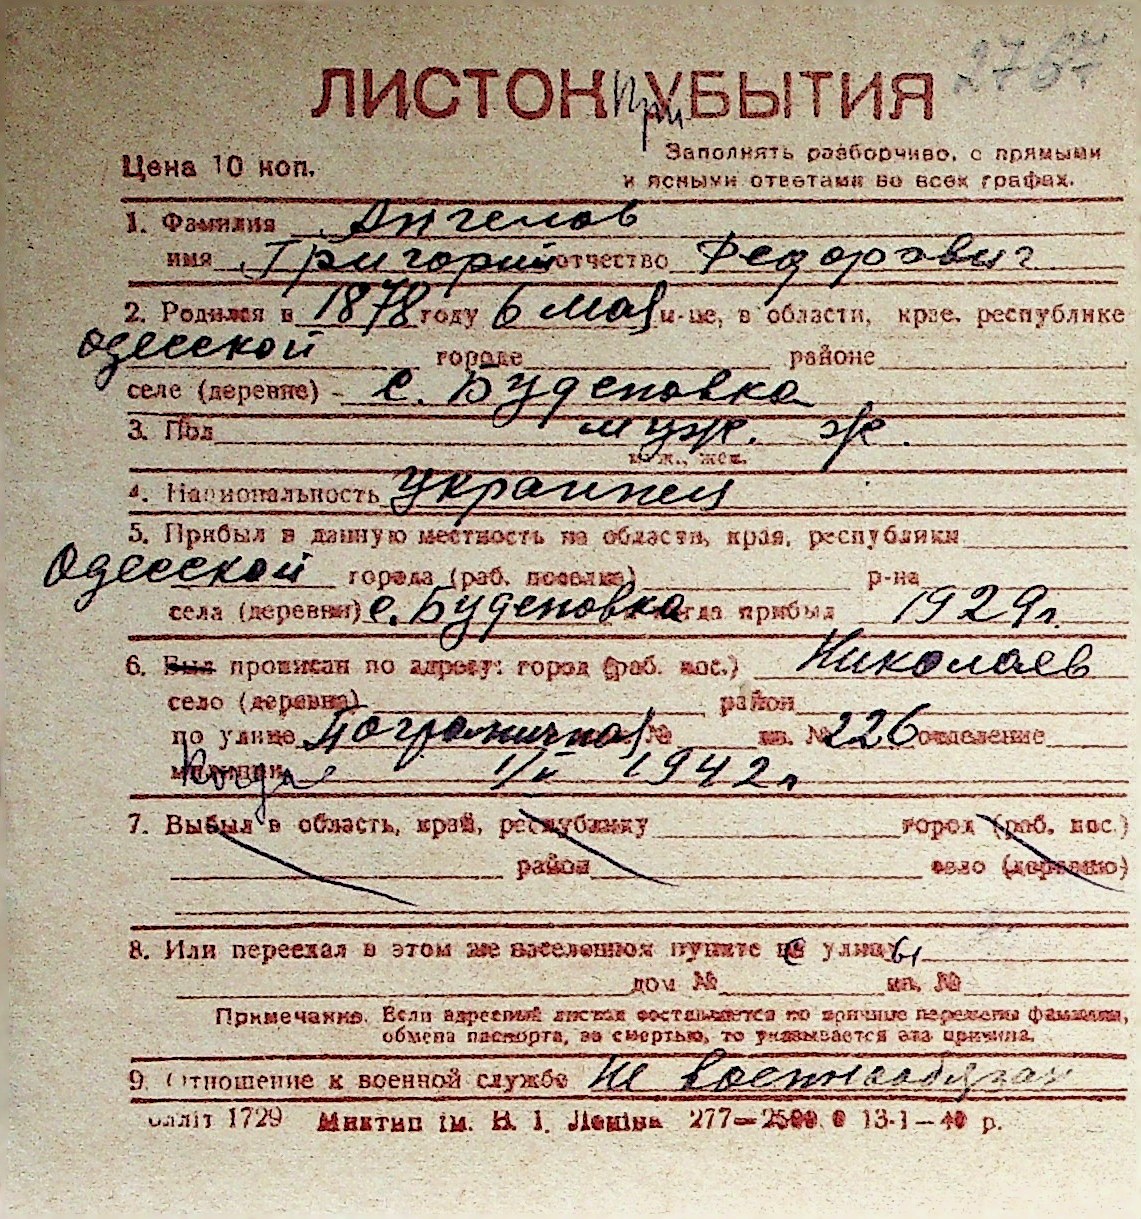 2767
ЛИСТОК При УБЫТИЯ
Цена 10 коп.
Заполнять разборчиво, с прямыми
и ясными ответами во всех графах.
1. Фамилия Ангелов
имя Григорий отчество Федорович
2. Родился в 1878 году 6 мая м-це, в области, крае, республике
Одесской городе районе
селе (деревне) - с. Буденовка
3. Пол муж. ж.
муж., жен.
4. Национальность Украинец
5. Прибыл в данную местность из области, края, республики
Одесской города (раб. поселка) р-на
села (деревни) с. Буденовка когда прибыл 1929 г.
6. Был прописан по адресу: город (раб. пос.) Николаев
село (деревня) район
по улице Пограничная № кв. № 226 отделение
милиции Когда 1942 г
7. Выбыл в область, край, республику город (раб. пос.)
район село (деревню)
8. Или переехал в этом же населенном пункте с улицы
дом № кв. №
Примечание. Если адресный листок составляется по причине перемены фамилии,
обмена паспорта, за смертью, то указывается эта причина.
9. Отношение к военной службе не военнообязан
блліт 1729 Миктип ім. В. І. Леніна 277—2500 13-1—40 р.